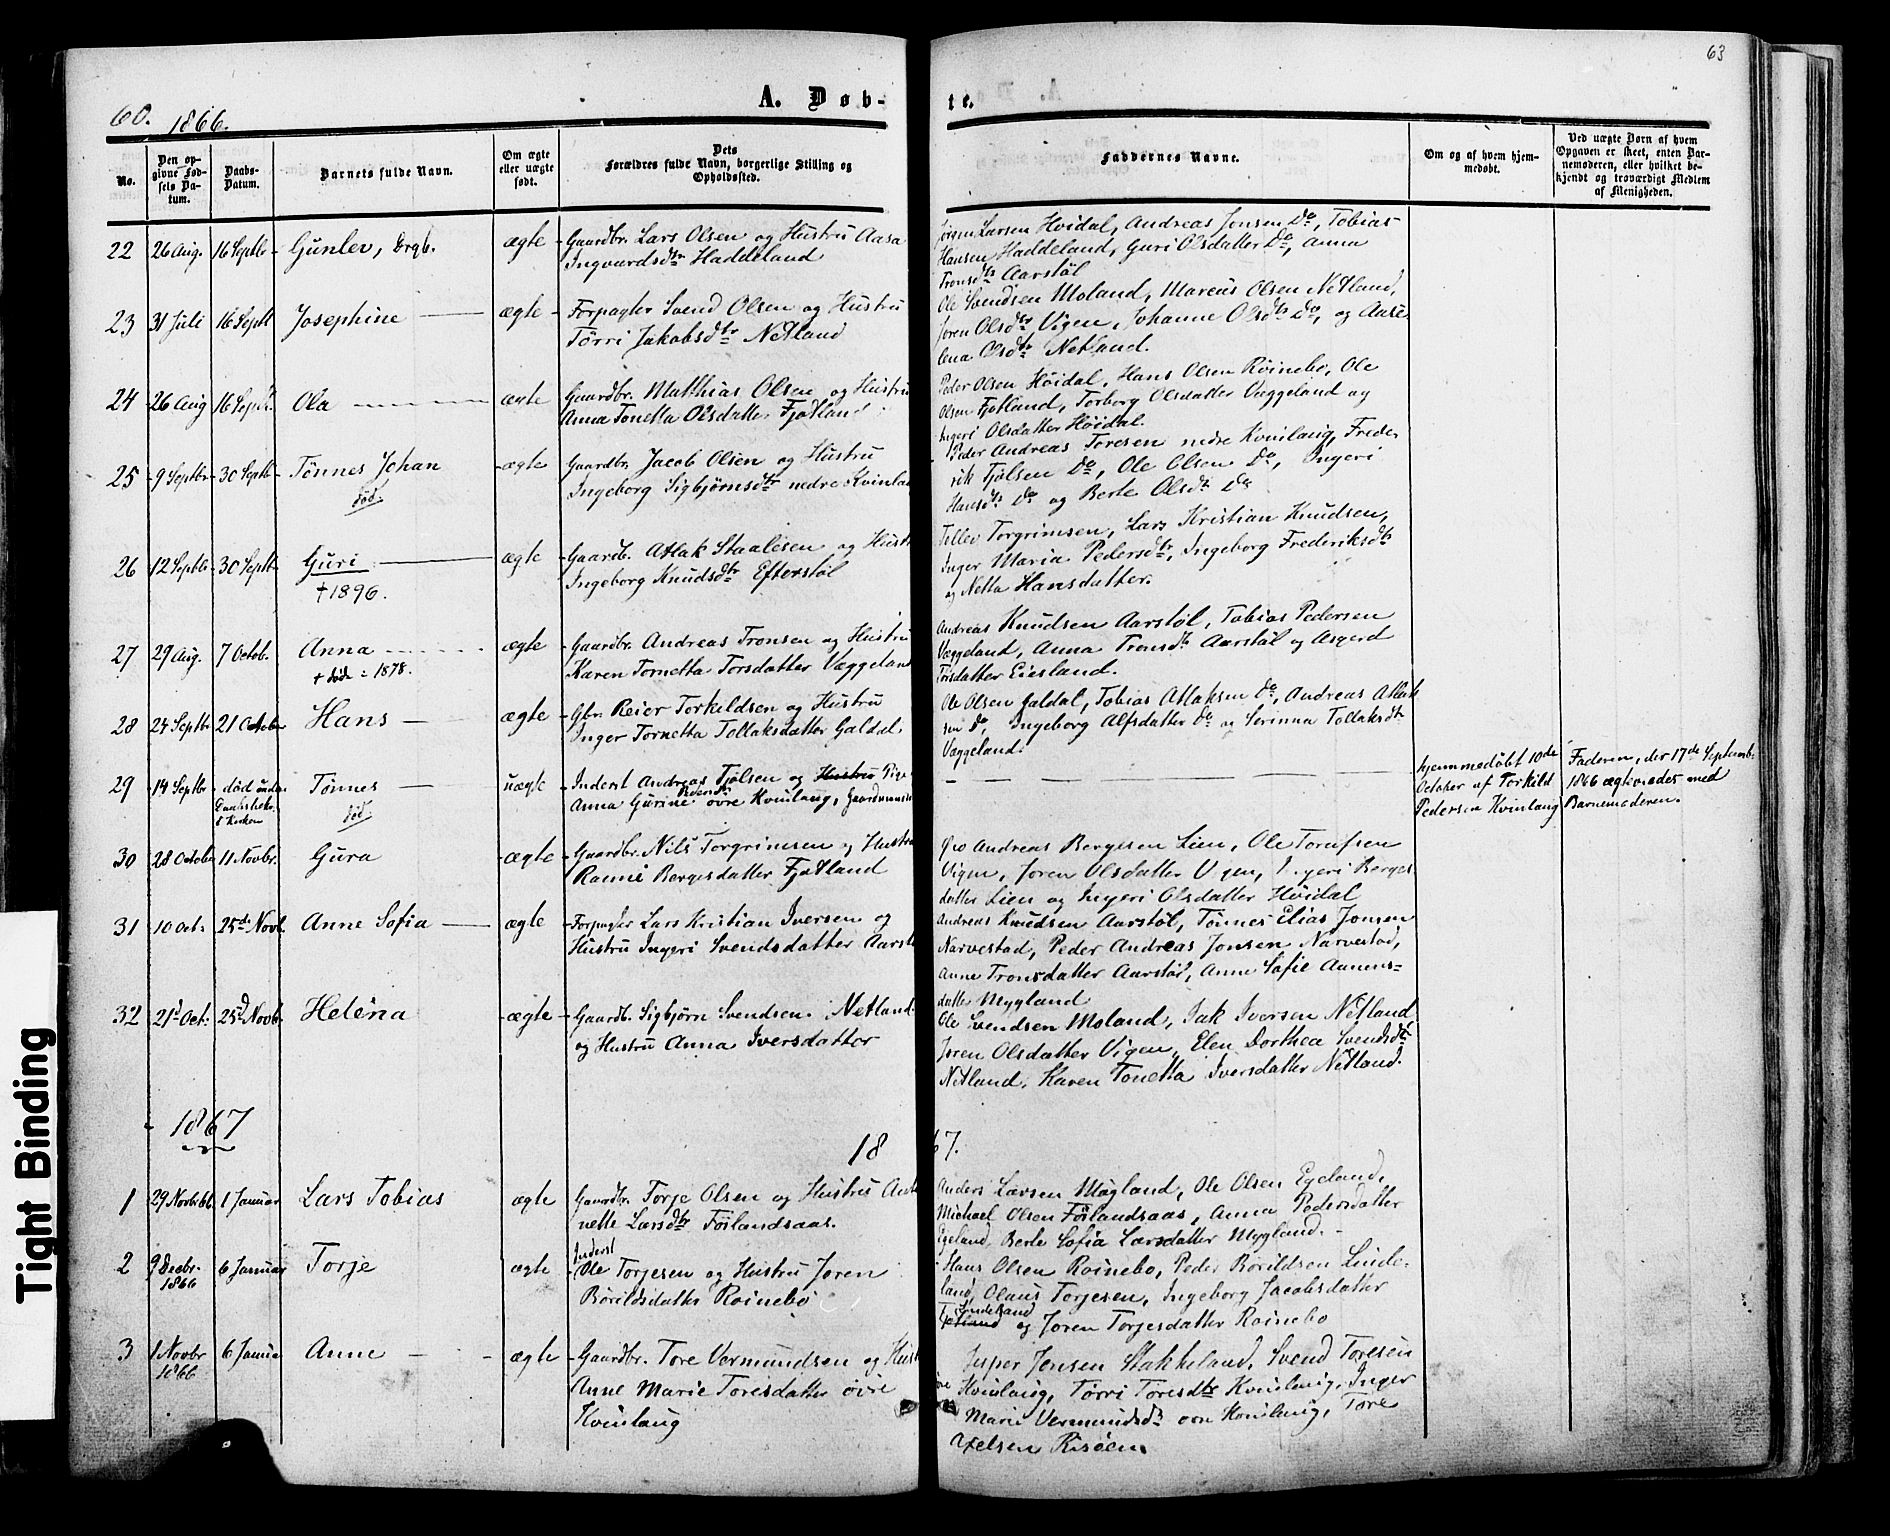 63
60. 1866.
A. Døb-
te.
No.
Den op-
givne Fød-
sels Da-
tum.
Daabs-
Datum.
Barnets fulde Navn.
Om ægte
eller uægte
født.
Dets
Forældres fulde Navn, borgerlige Stilling og
Opholdssted.
Faddernes Navne.
Om og af hvem hjem-
medøbt.
Ved uægte Børn af hvem
Opgaven er skeet, enten Bar-
nemoderen, eller hvilket be-
kjendt og troværdigt Medlem
af Menigheden.
22 26 Aug. 16 Septb Gunlev, Drgb. ægte Gaardbr. Lars Olsen og Hustru Aasa
Ingvardsdtr Haddeland
Jørgen Larsen Høidal, Andreas Jensen Do, Tobias
Hansen Haddeland, Guri Olsdatter Do, Anna
Tronsdtr Aarstøl
23 31 Juli 16 Septb Josephine ægte Forpagter Svend Olsen og Hustru
Tørri Jakobsdtr Netland
Ole Svendsen Moland, Marcus Olsen Netland,
Joren Olsdtr Vigen, Johanne Olsdtr Do, og Aase
lena Olsdtr Netland.
24 26 Aug 16 Septb. Ola ægte Gaardbr. Matthias Olsen og Hustru
Anna Tonetta Olsdatter Fjotland
Peder Olsen Høidal, Hans Olsen Røinebø, Ole
Olsen Fjotland, Torborg Olsdatter Væggeland og
Ingeri Olsdatter Høidal.
25 9 Septbr 30 Septb Tønnes Johan ægte Gaardbr. Jacob Olsen og Hustru
død.
Ingeborg Sigbjørnsdtr nedre Kvinlau
Peder Andreas Toresen nedre Kvinlaug, Frede-
rik Fjølsen Do, Ole Olsen Do, Ingeri
Hansdtr Do og Berte Olsdtr Do
26 12 Septb 30 Septb Guri ægte Gaardb. Atlak Staalesen og Hust
+ 1896.
Ingeborg Knudsdtr Efterstøl
Tellev Torgrimsen, Lars Kristian Knudsen,
Inger Maria Pedersdtr, Ingeborg Frederiksdtr
og Netta Hansdatter.
27 29 Aug. 7 Octob. Anna ægte Gaardbr. Andreas Tronsen og Hustru
+ døde : 1878.
Karen Tornetta Torsdatter Væggeland
Andreas Knudsen Aarstøl, Tobias Pedersen
Væggeland, Anna Tronsdtr Aarstøl og Asgerd
Torsdatter Eiesland.
28 24 Septbr 21 October Hans ægte Gbr. Reier Torkildsen og Hustru
Inger Tornetta Tollaksdatter Galdal.
Ole Olsen Galdal, Tobias Atlaksen Do, Andreas Atlak
sen Do, Ingeborg Alfsdatter Do og Serinna Tollaksdtr
Væggeland.
29 14 Septbr død under Tønnes uægte Inderst Andreas Fjølsen og Hustru Pige
død.
Anna Gurine øvre Kvinlaug, Gaardmands
hjemmedøbt 10de
October af Torkild
Pedersen Kvinlaug
Faderen, der 17de Septemb.
1866 ægtviedes med
Barnemoderen.
30 28 Octob 11 Novbr. Gura ægte Gaardbr. Nils Torgrimsen og Hustru
Ranni Bergesdatter Fjotland
Andreas Bergesen Lien, Ole
Vigen, Joren Olsdatter Vigen, Ingeri Berges
datter Lien og Ingeri Olsdatter Høidal
31 10 Oct. 25de Novb. Anne Sofia ægte Forpagter Lars Kristian Iversen og
Hustru Ingeri Svendsdatter Aarst
Andreas Knudsen Aarstøl, Tønnes Elias Jonsen
Narvestad, Peder Andreas Jonsen Narvestad,
Anne Tronsdatter Aarstøl, Anne Sofie Aanens-
datter Mygland
32 21d Oct: 25d Novb. Heléna ægte Gaardb. Sigbjørn Svendsen. Netland
og Hustru Anna Iversdatter
Ole Svendsen Moland, Jak Iversen Netland
Joren Olsdatter Vigen, Elen Dorthea Svendsdtr
Netland, Karen Tonetta Iversdatter Netland.
1867
18
67.
1 29 Novb. 66. 1 Januar Lars Tobias ægte Gaardbr. Torje Olsen og Hustru Ant
nette Larsdtr Førlandsaas.
Anders Larsen Mygland, Ole Olsen Egeland,
Michael Olsen Førlandsaas, Anna Pedersdatter
Egeland, Berte Sofia Larsdatter Mygland.
2 9 Decbr. 6 Januar Torje ægte Inderst
1866
Ole Torjesen og Hustru Joren
Børildsdatter Roinebø
Hans Olsen Roinebø, Peder Børildsen Linde-
land, Olaus Torjesen, Ingeborg Jacobsdatter
Lindeland
og Joren Torjesdatter Roinebø
3 1 Novbr 6 Janua Anne ægte Gaardbr. Tore Vermundsen og Hust
1866
Anne Marie Toresdatter øvre
Kvinlaug
Jesper Jensen Stakkeland, Svend Toresen
Kvinlaug, Tørri Toresdtr Kvinlaug, Inger
Marie Vermundsdtr øvre Kvinlaug, Tore
Axelsen Risøen
Tight Binding